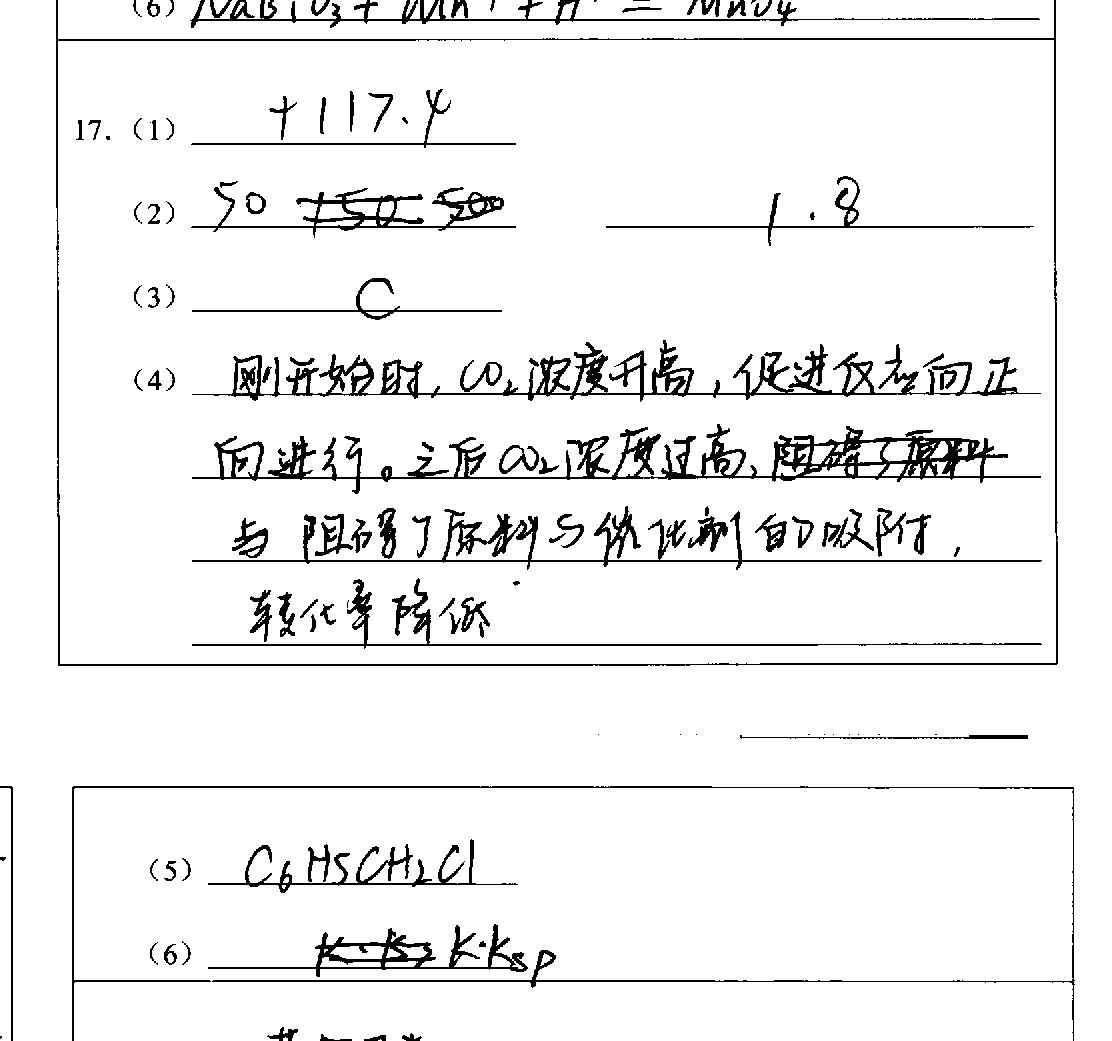 (6) NaBiO₃ + Mn²⁺ + H⁺ = MnO₄
17. (1) +117.4
(2) 50 150 500 1.8
(3) C
(4) 刚开始时, CO₂浓度升高, 促进反应向正
向进行。之后CO₂浓度过高、阻碍了原料
与 阻碍了原料与催化剂的吸附,
转化率降低
(5) C₆H5CH₂Cl
(6) K·Ks K·Ksp